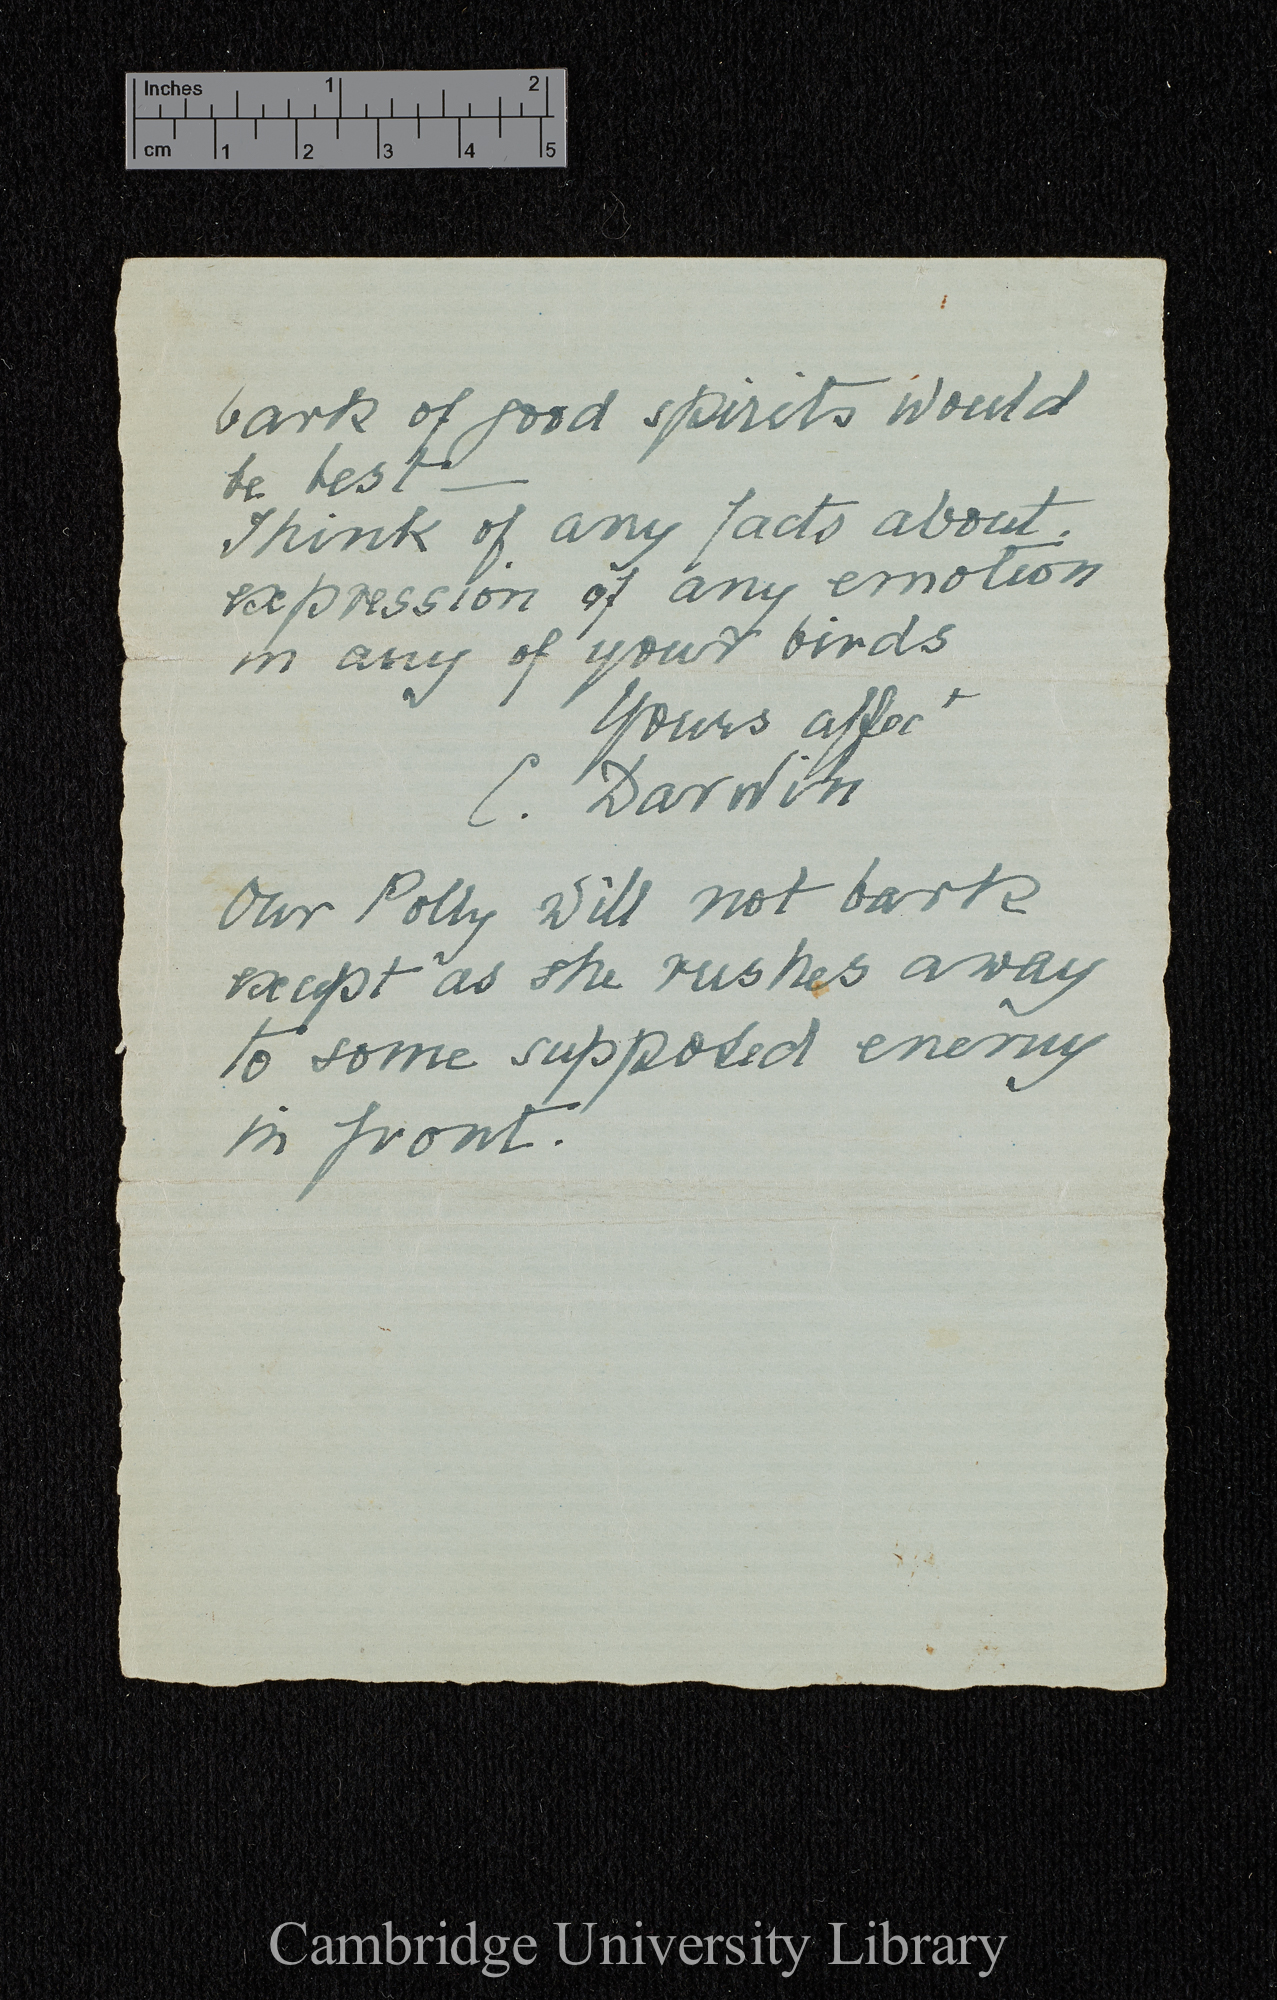 Inches 1 2
cm 1 2 3 4 5
bark of good spirits would
be best —
Think of any facts about
expression of any emotion
in any of your birds
Yours affect
C. Darwin
Our Polly will not bark
except as she rushes away
to some supposed enemy
in front.
Cambridge University Library